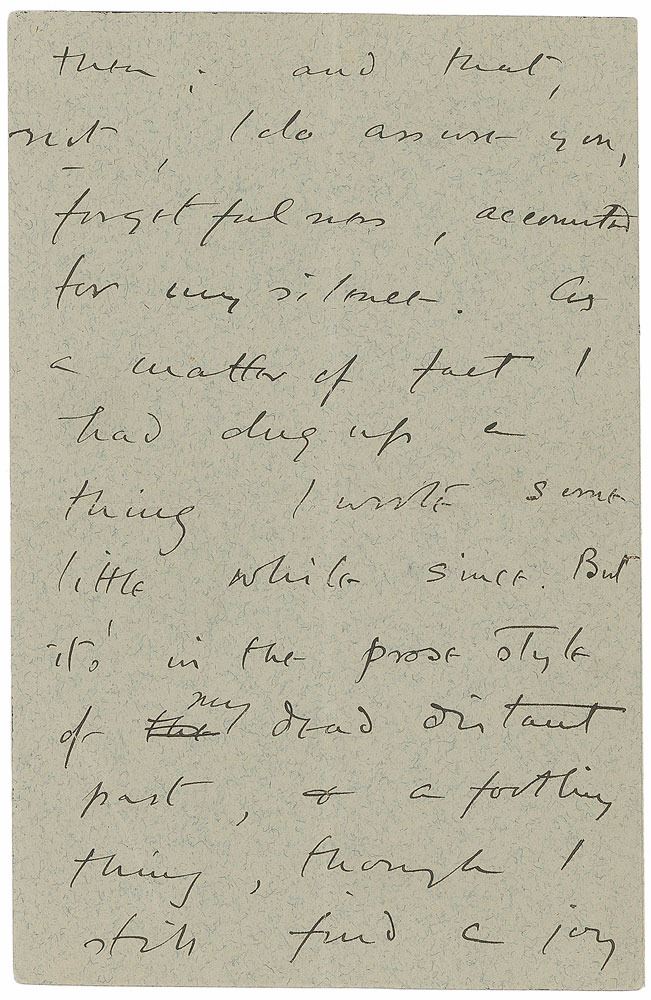 then ; and that,
not, I do assure you,
forgetfulness, accounted
for my silence. As
a matter of fact I
had dug up a
thing I wrote some
little while since. But
it's in the prose style
of the my dead distant
past, & a footling
thing, though I
still find a joy